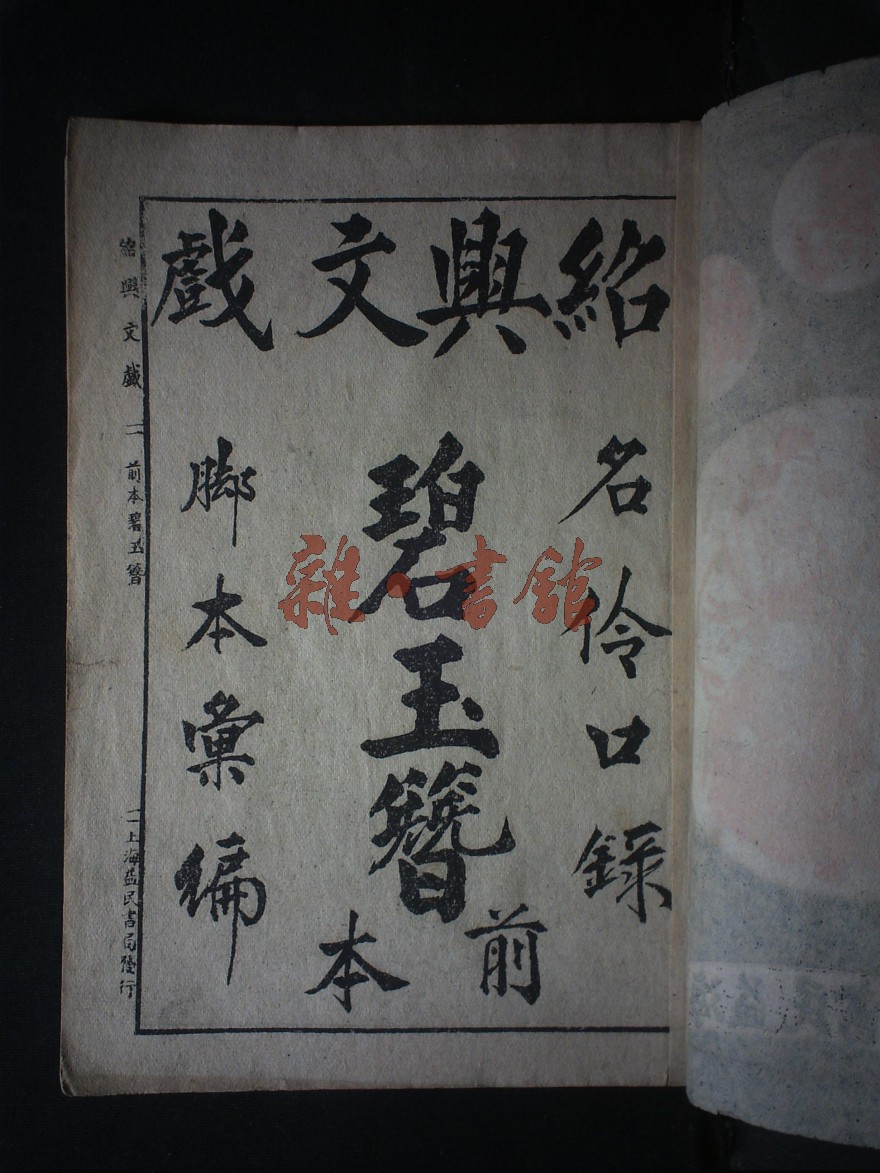 紹興文戲
名伶口錄
碧玉簪
前本
脚本彙編
紹興文戲
二
前本碧玉簪
一上海益民書局發行
雜·書館